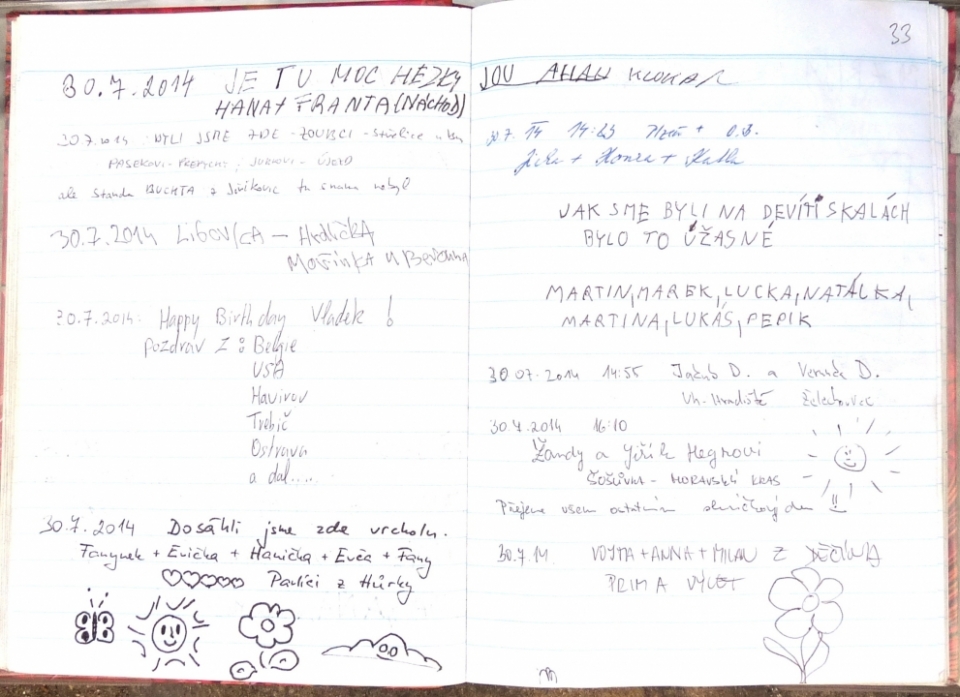 30.7.2014 JE TU MOC HEZKY
HANA + FRANTA (NÁCHOD)
30.7.2014 BYLI JSME ZDE
ale Standa BUCHTA z tu s nama nebyl
30.7.2014 LIBOVICA - Hrdlička
Mařinka u Berouna
30.7.2014: Happy Birthday Vladek!
pozdrav z: Belgie
USA
Havířov
Třebíč
Ostrava
a dal.....
30.7.2014 Dosáhli jsme zde vrcholu.
Fanynek + Evička + Hanička + Evča + Fany
Pavlíci z Hůrky
33
JOU AHAU
30.7. 14 14:23 Plzeň + O.B.
Jirka + Honza + Katka
JAK SME BYLI NA DEVÍTI SKALÁCH
BYLO TO ÚŽASNÉ
MARTIN, MAREK, LUCKA, NATÁLKA,
MARTINA, LUKÁŠ, PEPIK
30 07. 2014 14:55 Jakub D. a Veronika D.
Uh. Hradiště Želechovice
30.7.2014 16:10
Žandy a Jiřík Hegrovi
ŠOŠŮVKA - MORAVSKÝ KRAS
Přejeme všem ostatním sluníčkový den
30.7.14 VOJTA + ANNA + MILAN Z DĚČÍNA
PRIMA VÝLET